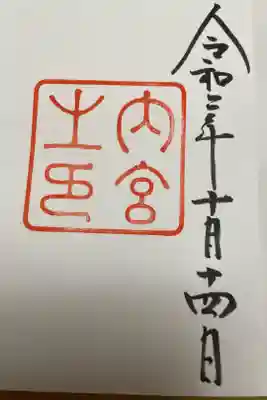 令和二年十月十四日
内宮
之印